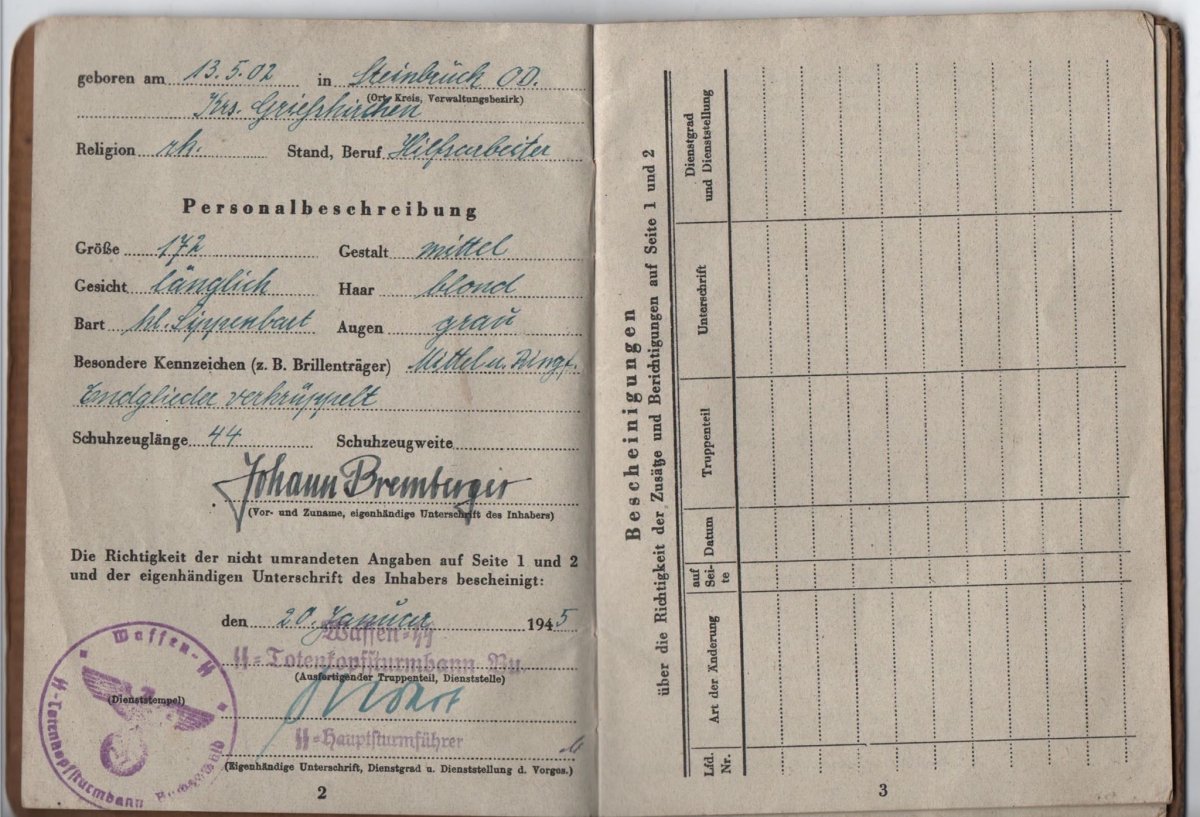 geboren am 13.5.02 in Steinbrück OD.
(Ort, Kreis, Verwaltungsbezirk)
Krs. Grieskirchen
Religion rk. Stand, Beruf Hilfsarbeiter
Personalbeschreibung
Größe 172 Gestalt mittel
Gesicht länglich Haar blond
Bart kl. Lippenbart Augen grau
Besondere Kennzeichen (z. B. Brillenträger) Mittel u. Ringf.
Endglieder verkrüppelt
Schuhzeuglänge 44 Schuhzeugweite
Johann Bremberger
(Vor- und Zuname, eigenhändige Unterschrift des Inhabers)
Die Richtigkeit der nicht umrandeten Angaben auf Seite 1 und 2
und der eigenhändigen Unterschrift des Inhabers bescheinigt:
den 20. Januar 1945
Waffen-SS
SS-Totenkopfsturmbann Bu.
(Ausfertigender Truppenteil, Dienststelle)
(Dienststempel)
SS-Hauptsturmführer
(Eigenhändige Unterschrift, Dienstgrad u. Dienststellung d. Vorges.)
Waffen-SS
SS-Totenkopfsturmbann
2
Bescheinigungen
über die Richtigkeit der Zusätze und Berichtigungen auf Seite 1 und 2
Lfd. Nr.
Art der Änderung
auf Sei- te
Datum
Truppenteil
Unterschrift
Dienstgrad und Dienststellung
3